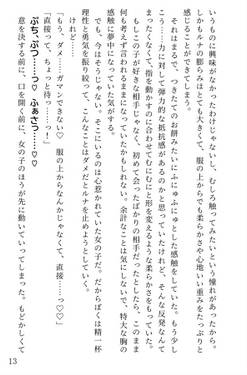 いうものに興味がなかったわけじゃないし、むしろ触ってみたいという憧れがあったから
しかもルナの膨らみはとても大きくて、服の上からでも柔らかさや心地いい重みをたっぷりと
感じることができてしまう。
それはまるで、つきたてのお餅みたいにふにゅふにゅとした感触をしていた。もう少し
こう……力に対して弾力的な抵抗感があるのかと思っていたけれど、そんな反発なんて
まったくなくて、指を動かすのに合わせてむにむにと形を変えるような柔らかさをもっていた。
もしこの子が好きな相手じゃなく、初めて会ったばかりの相手だったとしたら、このまま
何も考えず溺れるままにしていたかもしれない。余計なことは気にしないで、特大な胸の
感触に夢中に
でも、今はそうじゃない。そこにいるのは心惹かれていた女の子だ。だからぼくは精一杯
理性と勇気を振り絞って、こんなことはダメだとルナを止めようとしていく。
けれど
「直接って、ちょっと待っ……っ！」
「もう、ダメ……ガマンできない♡ 服の上からなんかじゃなくて、直接……っ♡♡」
ぷち、ぷつ……っ♡ ふぁさっ……♡
意を決する前に、口を開く前に、女の子のほうが先に動いていってしまった。もどかしくて
13